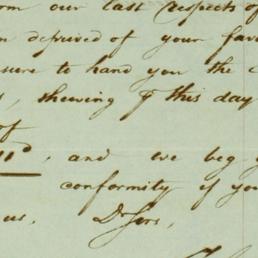 our last respects of
deprived of your fav
sure to hand you the
shewing this day
of
and we beg
conformity if you
us, Drs Sirs,